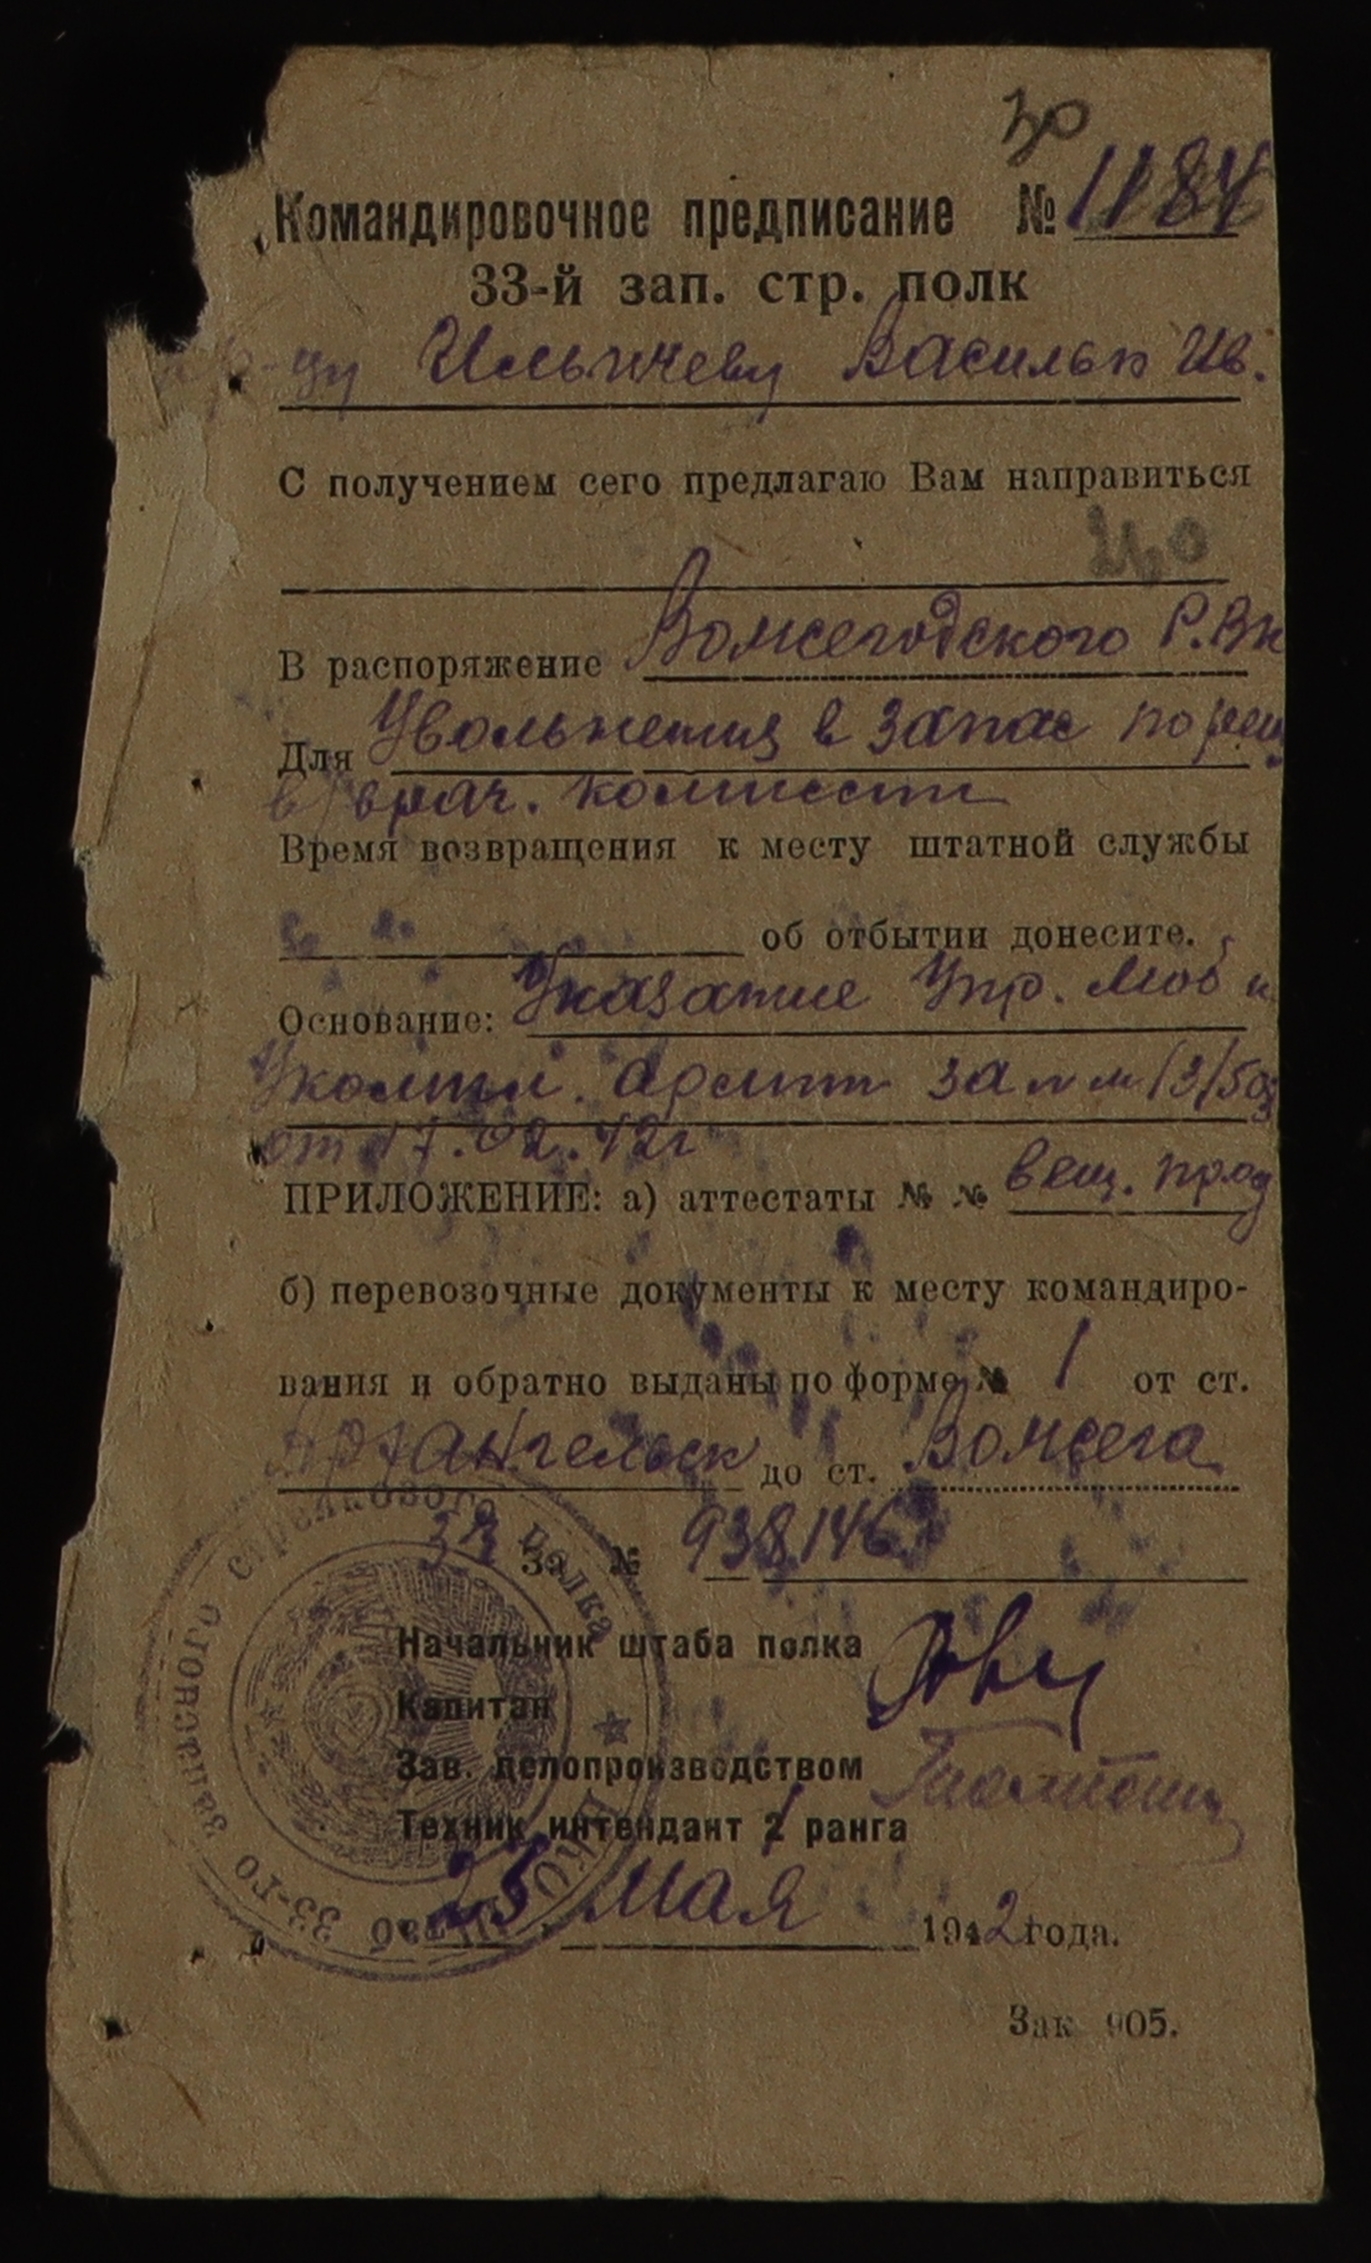 30
Командировочное предписание № 1184
33-й зап. стр. полк
кр-цу Ильичеву Василью Ив.
С получением сего предлагаю Вам направиться
В распоряжение Вожегодского Р.Вк
Для Увольнения в запас по реш
в/врач. комиссии
Время возвращения к месту штатной службы
об отбытии донесите.
Основание: Указание Упр. Моб и
Укомпл. Армии за
от 17.02.42г
ПРИЛОЖЕНИЕ: а) аттестаты № № вещ. прод
б) перевозочные документы к месту командиро-
вания и обратно выданы по форме № 1 от ст.
Архангельск до ст. Вожега
За № 938146
Начальник штаба полка
Капитан
Зав. делопроизводством
Техник интендант 1 ранга
25 мая 1942 года.
Зак 905.
Штаб 33-го запасного стрелкового полка
НКО